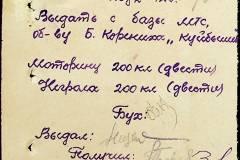 Выдать с базы МТС,
об-ву Б. Корениха „Куйбышев
Моторину 200 кл (двести)
Неграла 200 кл (двести)
Бух:
Выдал:
Получил: